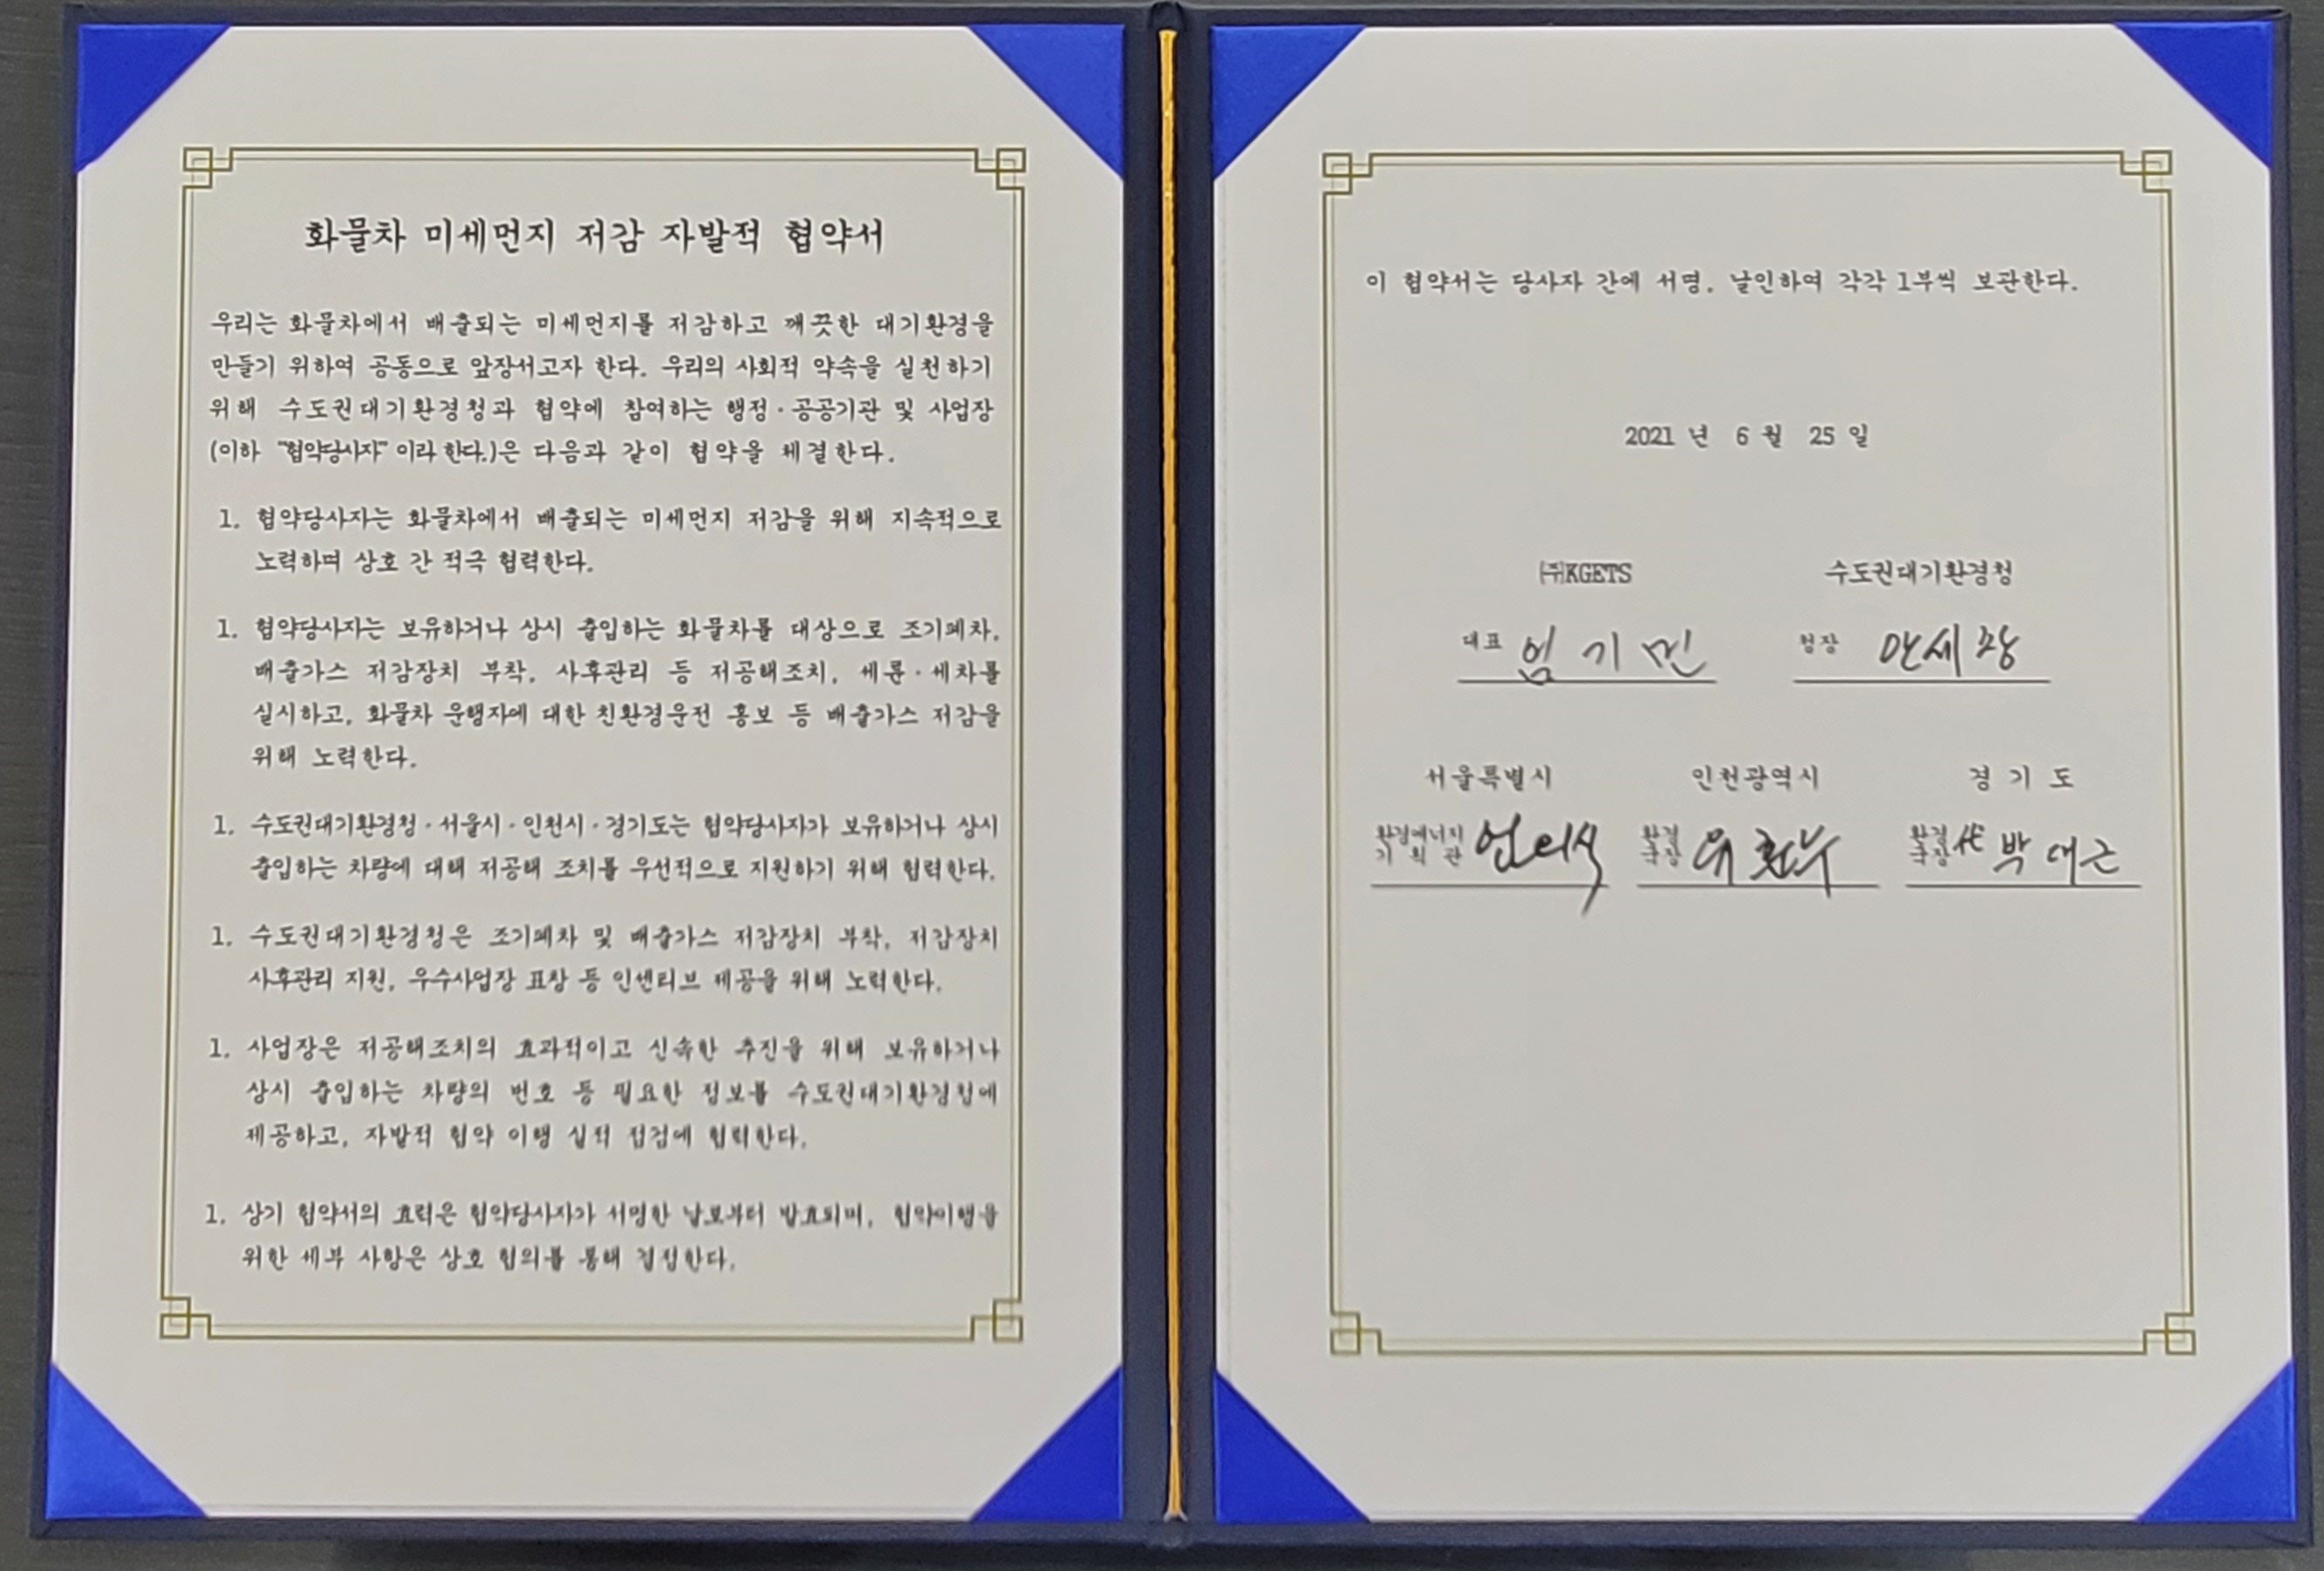 화물차 미세먼지 저감 자발적 협약서
우리는 화물차에서 배출되는 미세먼지를 저감하고 깨끗한 대기환경을
만들기 위하여 공동으로 앞장서고자 한다. 우리의 사회적 약속을 실천하기
위해 수도권대기환경청과 협약에 참여하는 행정·공공기관 및 사업장
(이하 "협약당사자" 이라 한다.)은 다음과 같이 협약을 체결한다.
1. 협약당사자는 화물차에서 배출되는 미세먼지 저감을 위해 지속적으로
노력하며 상호 간 적극 협력한다.
1. 협약당사자는 보유하거나 상시 출입하는 화물차를 대상으로 조기폐차,
배출가스 저감장치 부착, 사후관리 등 저공해조치, 세륜·세차를
실시하고, 화물차 운행자에 대한 친환경운전 홍보 등 배출가스 저감을
위해 노력한다.
1. 수도권대기환경청·서울시·인천시·경기도는 협약당사자가 보유하거나 상시
출입하는 차량에 대해 저공해 조치를 우선적으로 지원하기 위해 협력한다.
1. 수도권대기환경청은 조기폐차 및 배출가스 저감장치 부착, 저감장치
사후관리 지원, 우수사업장 표창 등 인센티브 제공을 위해 노력한다.
1. 사업장은 저공해조치의 효과적이고 신속한 추진을 위해 보유하거나
상시 출입하는 차량의 번호 등 필요한 정보를 수도권대기환경청에
제공하고, 자발적 협약 이행 실적 점검에 협력한다.
1. 상기 협약서의 효력은 협약당사자가 서명한 날로부터 발효되며, 협약이행을
위한 세부 사항은 상호 협의를 통해 결정한다.
이 협약서는 당사자 간에 서명, 날인하여 각각 1부씩 보관한다.
2021 년 6 월 25 일
㈜KGETS 수도권대기환경청
대표 엄기민 청장 안세창
서울특별시 인천광역시 경 기 도
환경에너지 환경 환경
기 획 관 국장 유훈수 국장 代 박대근